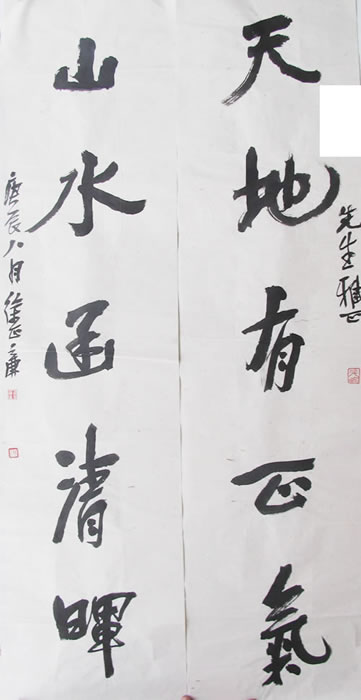 先生雅正
天地有正氣
山水函清暉
庚辰八月徐正廉